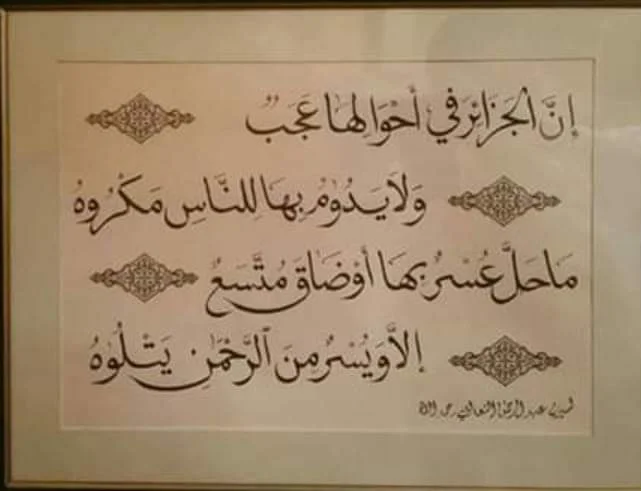 إنَّ الجَزَائرَ في أحْوَالِهَا عَجَبٌ
وَلَا يَدُومُ بِهَا لِلنَّاسِ مَكْرُوهُ
مَا حَلَّ عُسْرٌ بهَا أوْ ضَاقَ مُتَّسَعٌ
إلاَّ وَيُسْرٌ مِنَ الرَّحْمَٰنِ يَتْلُوهُ
لسيدي عبد الرحمن الثعالبي رحمه الله